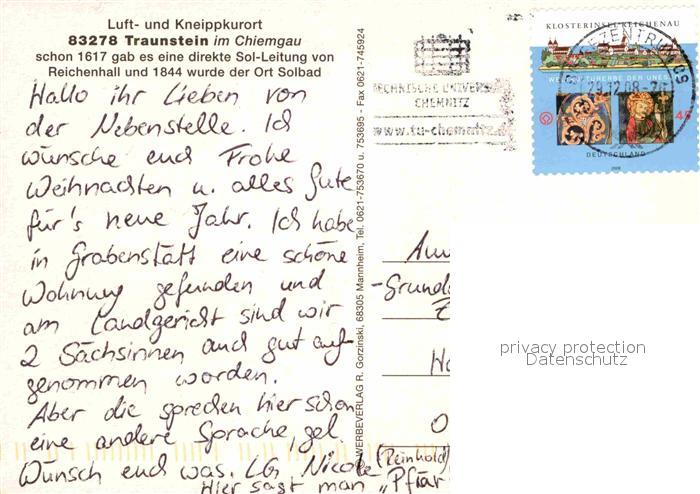 Luft- und Kneippkurort
83278 Traunstein im Chiemgau
schon 1617 gab es eine direkte Sol-Leitung von
Reichenhall und 1844 wurde der Ort Solbad
Hallo ihr Lieben von
der Nebenstelle. Ich
wünsche euch Frohe
Weihnachten u. alles Gute
für's neue Jahr. Ich habe
in Grabenstätt eine schöne
Wohnung gefunden und
am Landgericht sind wir
2 Sächsinnen und gut auf-
genommen worden.
Aber die sprechen hier schon
eine andere Sprache gel.
Wünsch euch was. LG Nicole (Reinhold)
Hier sagt man "Pfiat
WERBEVERLAG R. Gorzinski, 68305 Mannheim, Tel. 0621-753670 u. 753695 - Fax 0621-745924
TECHNISCHE UNIVERS
CHEMNITZ
www.tu-chemnitz.d
KLOSTERINSEL REICHENAU
WELTKULTURERBE DER UNESCO
45
DEUTSCHLAND
2008
ZENTRUM
29.12.08
-Grund
privacy protection
Datenschutz